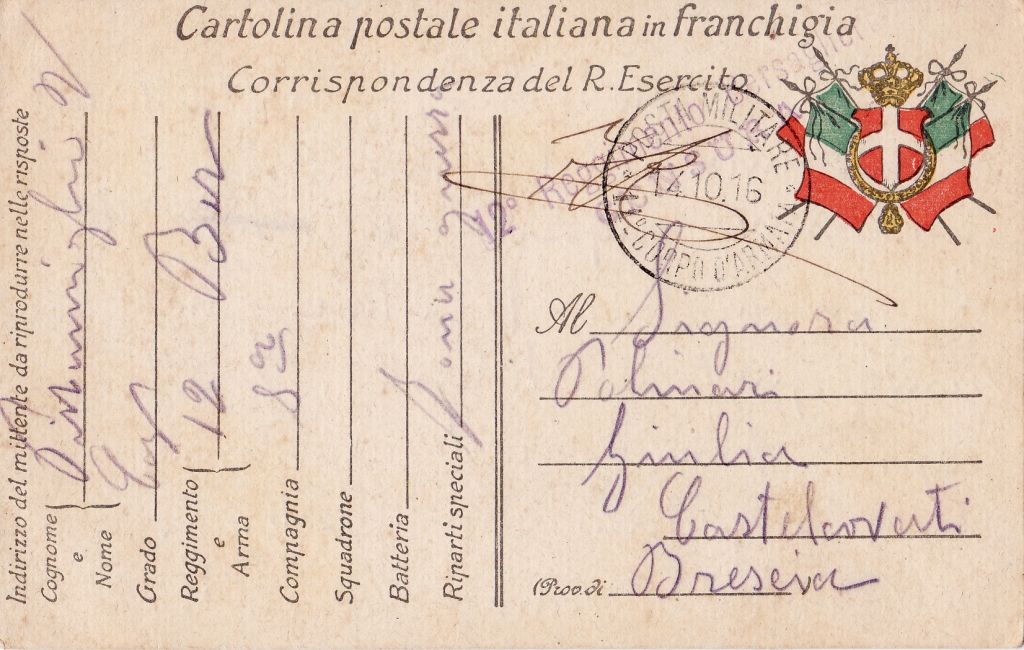 Cartolina postale italiana in franchigia
Corrispondenza del R. Esercito
POSTA MILITARE
10.16
CORPO D'ARMATA
12° Regg
Indirizzo del mittente da riprodurre nelle risposte
Cognome e Nome
Grado
Reggimento e Arma 12
Compagnia 8a
Squadrone
Batteria
Riparti speciali Zona guerra
Al Signora
Polinari
Giulia
Castelcovati
(Prov. di Brescia